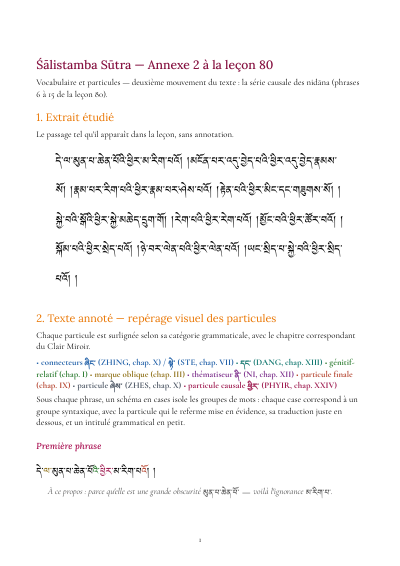 Śālistamba Sūtra — Annexe 2 à la leçon 80
Vocabulaire et particules — deuxième mouvement du texte : la série causale des nidāna (phrases
6 à 15 de la leçon 80).
1. Extrait étudié
Le passage tel qu'il apparaît dans la leçon, sans annotation.
དེ་ལ་མུན་པ་ཆེན་པོའི་ཕྱིར་མ་རིག་པའོ། །མངོན་པར་འདུ་བྱེད་པའི་ཕྱིར་འདུ་བྱེད་རྣམས་
སོ། །རྣམ་པར་རིག་པའི་ཕྱིར་རྣམ་པར་ཤེས་པའོ། །རྟེན་པའི་ཕྱིར་མིང་དང་གཟུགས་སོ། །
སྐྱེ་བའི་སྒོའི་ཕྱིར་སྐྱེ་མཆེད་དྲུག་གོ། །རེག་པའི་ཕྱིར་རེག་པའོ། །མྱོང་བའི་ཕྱིར་ཚོར་བའོ། །
སྐོམ་པའི་ཕྱིར་སྲེད་པའོ། །ཉེ་བར་ལེན་པའི་ཕྱིར་ལེན་པའོ། །ཡང་སྲིད་པ་སྐྱེ་བའི་ཕྱིར་སྲིད་
པའོ། །
2. Texte annoté — repérage visuel des particules
Chaque particule est surlignée selon sa catégorie grammaticale, avec le chapitre correspondant
du Clair Miroir.
• connecteurs ཞིང་ (ZHING, chap. X) / སྟེ་ (STE, chap. VII) • དང་ (DANG, chap. XIII) • génitif-
relatif (chap. I) • marque oblique (chap. III) • thématiseur ནི་ (NI, chap. XII) • particule finale
(chap. IX) • particule ཞེས་ (ZHES, chap. X) • particule causale ཕྱིར་ (PHYIR, chap. XXIV)
Sous chaque phrase, un schéma en cases isole les groupes de mots : chaque case correspond à un
groupe syntaxique, avec la particule qui le referme mise en évidence, sa traduction juste en
dessous, et un intitulé grammatical en petit.
Première phrase
དེ་ལ་མུན་པ་ཆེན་པོའི་ཕྱིར་མ་རིག་པའོ། །
À ce propos : parce qu'elle est une grande obscurité མུན་པ་ཆེན་པོ་ — voilà l'ignorance མ་རིག་པ་.
1